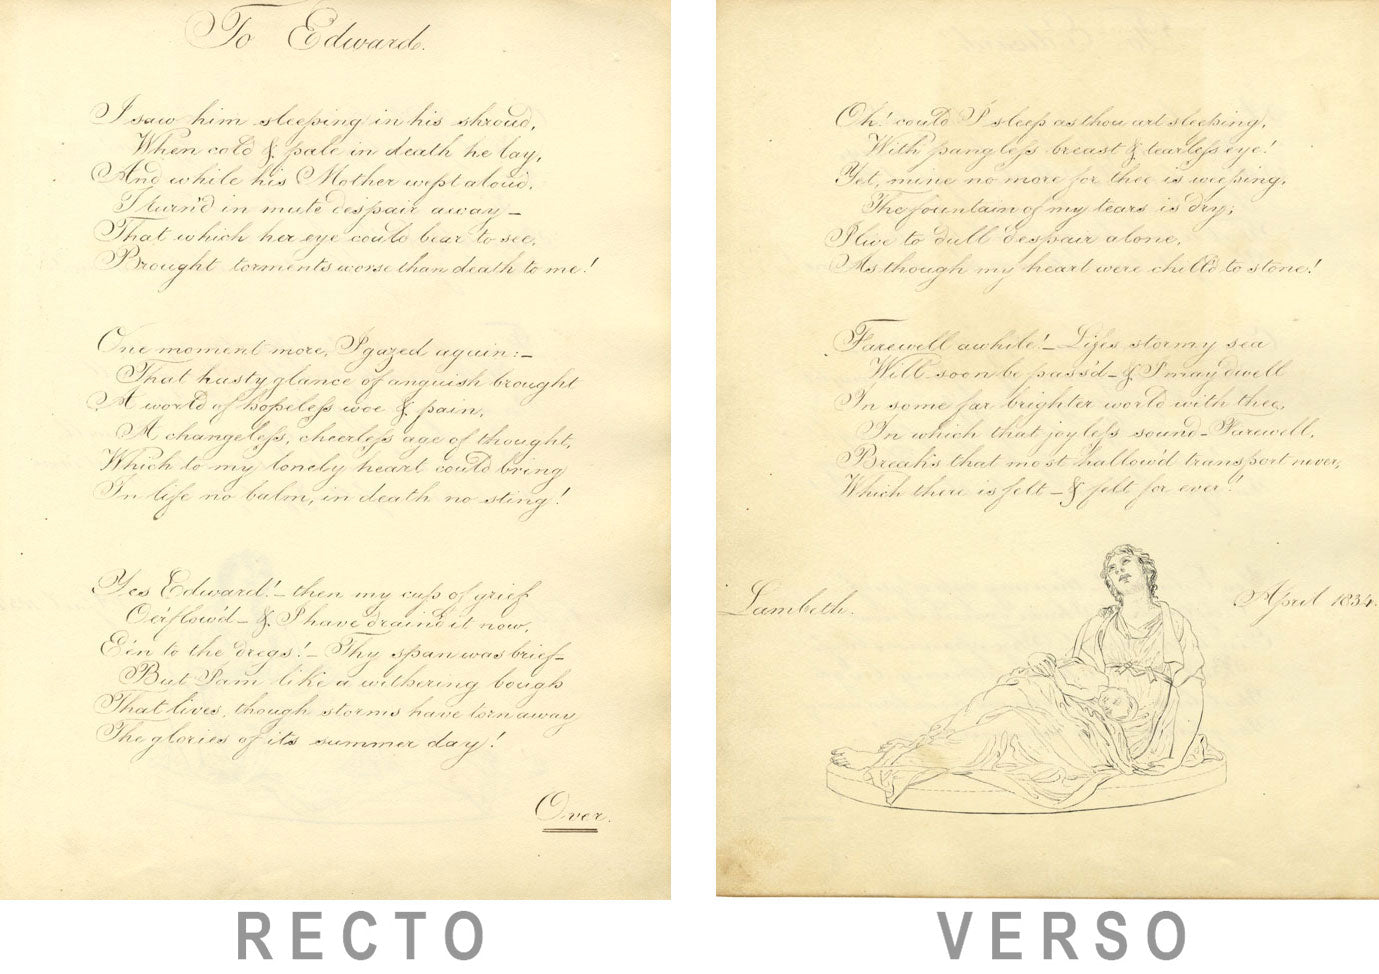 To Edward.
I saw him sleeping in his shroud,
When cold & pale in death he lay,
And while his Mother wept aloud,
I turn'd in mute despair away –
That which her eye could bear to see,
Brought torments worse than death to me!
One moment more, I gazed again:–
That hasty glance of anguish brought
A world of hopeless woe & pain,
A changeless, cheerless age of thought,
Which to my lonely heart could bring
In life no balm, in death no sting!
Yes Edward! – then my cup of grief
O'erflow'd – & I have drain'd it now,
E'en to the dregs! – Thy span was brief –
But I am like a withering bough
That lives, though storms have torn away
The glories of its summer day!
Over.
RECTO
Oh! could I sleep as thou art sleeping,
With pangless breast & tearless eye!
Yet, mine no more for thee is weeping,
The fountain of my tears is dry;
I live to dull despair alone,
As though my heart were chill'd to stone!
Farewell awhile! – Life's stormy sea
Will soon be pass'd – & I may dwell
In some far brighter world with thee,
In which that joyless sound – Farewell,
Breaks that most hallow'd transport never,
Which there is felt – & felt for ever!
Lambeth.
April 1834.
VERSO